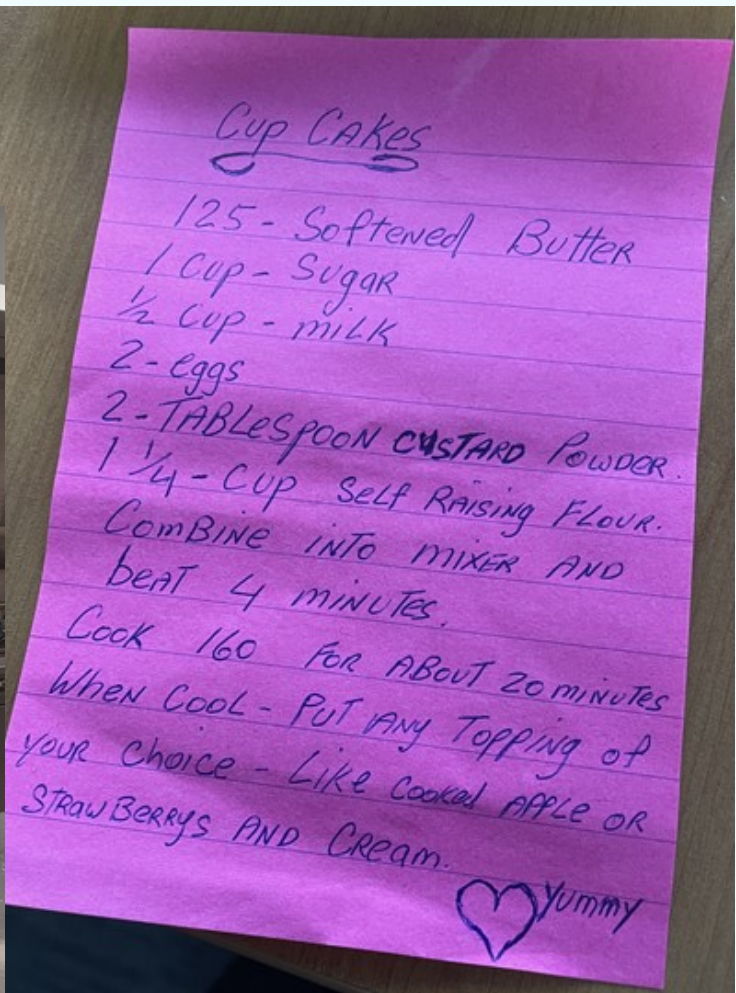 Cup CAKes
125 - Softened Butter
1 Cup - Sugar
½ Cup - milk
2 - eggs
2 - TABLeSpooN CUSTARD POWDER.
1 ¼ - Cup Self RAising FLOUR.
ComBiNe iNTO MiXER AND
beAT 4 MiNUTeS.
Cook 160 FOR ABOUT 20 miNuTes
WheN COOL - PUT ANy ToppiNg of
YOUR Choice - Like Cooked APPLe OR
STRAWBeRRys AND CReam.
♡ Yummy